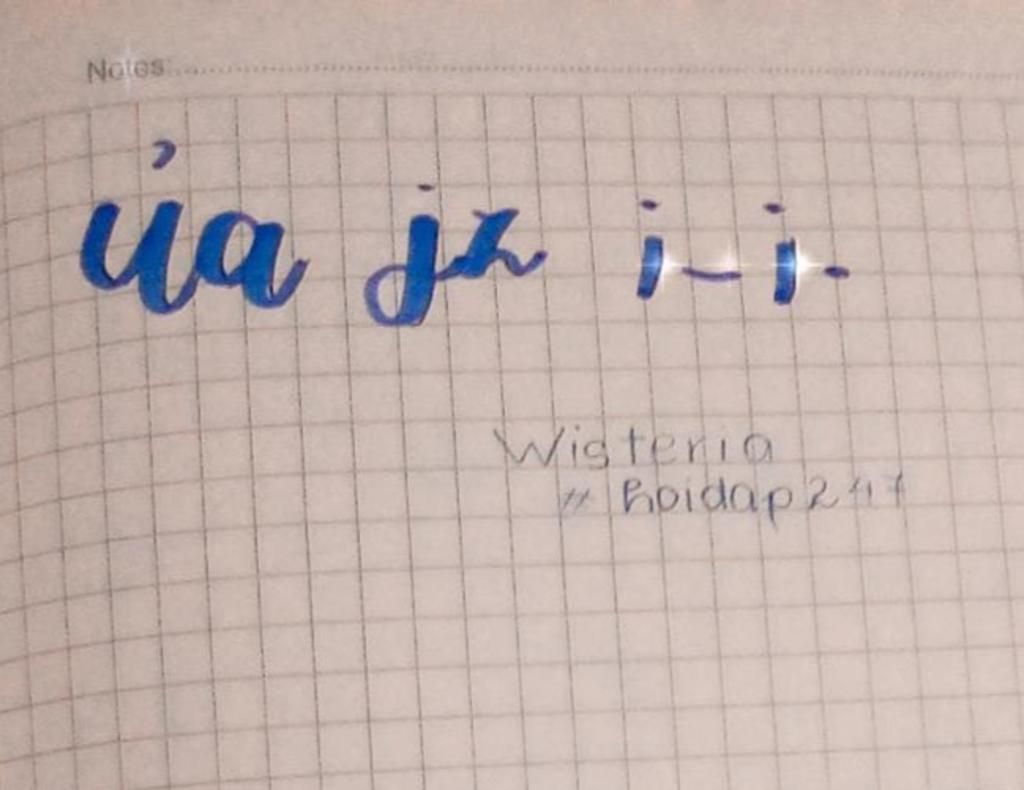 Notes:
ủa jz i_i.
Wisteria
# hoidap247